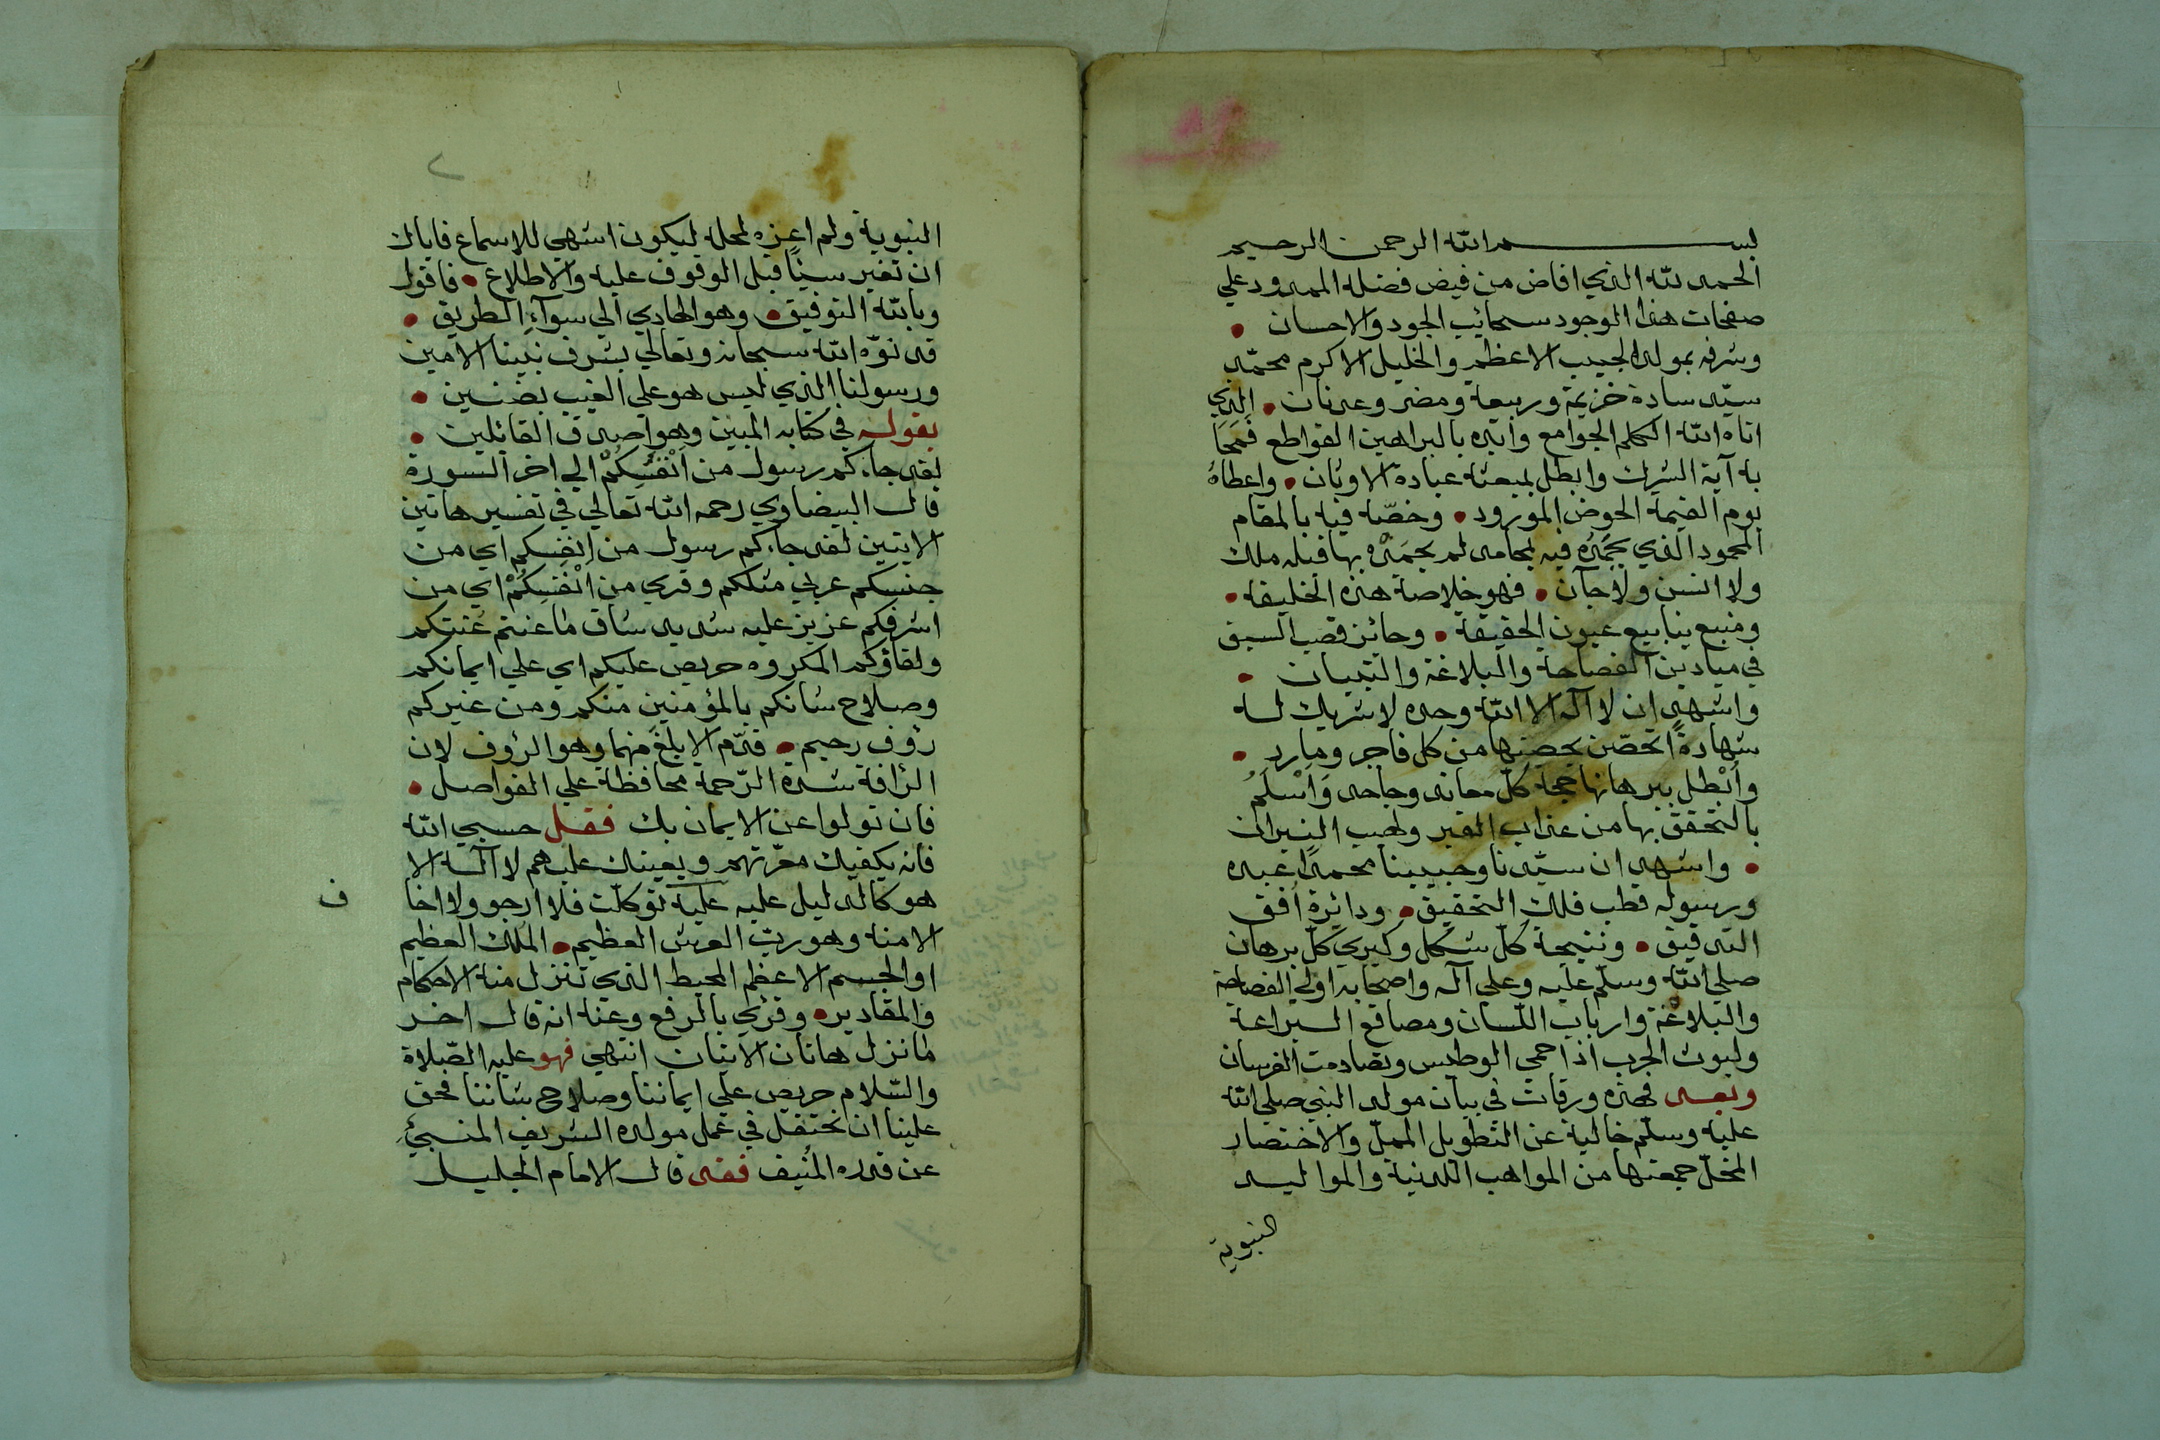 بسم الله الرحمن الرحيم
الحمد لله الذي افاض من فيض فضله الممدود علي
صفحات هذا الوجود سحائب الجود والاحسان •
وشرفه بمولد الحبيب الاعظم والخليل الاكرم محمّد
سيّد سادة خزيمة وربيعة ومضر وعدنان • الذي
اتاه الله الكلم الجوامع وايّده بالبراهين القواطع فمحَا
به آية الشرك وابطل بمبعثه عبادة الاوثان • واعطاهُ
يوم القيمة الحوض المورود • وخصّه فيه بالمقام
المحمود الذي يحمَدُه فيه بمحامد لم يحمَدْه بها قبله ملك
ولا انس ولا جآن • فهو خلاصة هذه الخليقة •
ومنبع ينابيع عيون الحقيقة • وحائز قصب السبق
في ميادين الفصاحة والبلاغة والتبيان •
واشهد ان لا اله الا الله وحده لا شريك له
شهادةً اتحصّن بحصنها من كل فاجر ومارد •
واُبْطل ببرهانها حجة كلّ معاند وجاحد وَاَسْلَمُ
بالتحقق بها من عذاب القبر ولهيب النيران
• واشهد ان سيّدنا وحبيبنا محمدًا عبده
ورسوله قطب فلك التحقيق • ودائرة اُفق
التدقيق • ونتيجة كلّ شكل وكبري كلّ برهان
صلي الله وسلّم عليه وعلي آله واصحابه اولي الفصاحة
والبلاغة وارباب اللّسان ومصاقع البراعة
وليوث الحرب اذا حمي الوطيس وتصادمت الفرسان
وبعد فهذه ورقات في بيان مولد النبي صلي الله
عليه وسلّم خالية عن التطويل المملّ والاختصار
المخلّ جمعتها من المواهب اللدنية والمواليد
النبوية
النبوية ولم اعزه لمحله ليكون اشهي للاسماع فاياك
ان تغير شيئًا قبل الوقوف عليه والاطلاع • فاقول
وبالله التوفيق • وهو الهادي الي سوآءِ الطريق •
قد نوّه الله سبحانه وتعالي بشرف نبينا الامين
ورسولنا الذي ليس هو علي الغيب بضنين •
بقوله في كتابه المبين وهو اصدق القائلين •
لقد جاءكم رسول من اَنْفُسِكُمْ الي اخر السورة
قال البيضاوي رحمه الله تعالي في تفسير هاتين
الايتين لقد جاءكم رسول من انفسكم اي من
جنسكم عربي مثلكم وقري من اَنْفَسِكُمْ اي من
اشرفكم عزيز عليه شديد شاق ما عنتم عَنَتكم
ولقاؤكم المكروه حريص عليكم اي علي ايمانكم
وصلاح شانكم بالمؤمنين منكم ومن غيركم
رؤف رحيم • قدّم الابلغ منهما وهو الرؤف لان
الرأفة شدة الرّحمة محافظة علي الفواصل •
فان تولوا عن الايمان بك فقل حسبي الله
فانه يكفيك معرّتهم ويعينك عليهم لا اله الا
هو كالدليل عليه عليه توكلّت فلا ارجو ولا اخا
ف
الا منه وهو ربّ العرش العظيم • الملك العظيم
او الجسم الاعظم المحيط الذي تنزل منه الاحكام
والمقادير • وقرئ بالرفع وعنه انه قال اخر
ما نزل هاتان الايتان انتهي فهو عليه الصّلاة
والسّلام حريص علي ايماننا وصلاح شاننا فحق
علينا ان نحتفل في عمل مولده الشريف المنبئِ
عن قدره المنيف فقد قال الامام الجليل